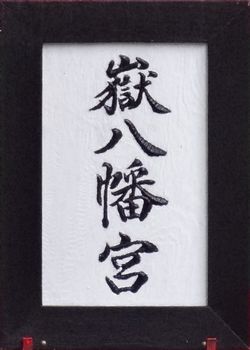 嶽八幡宮